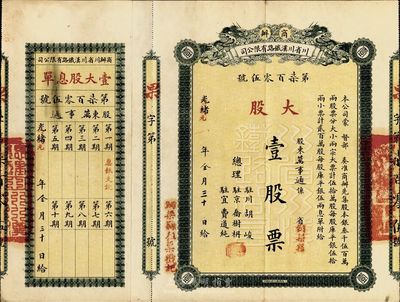 商辦
川省川漢鐵路有限公司
第柒百零伍號
大股
壹股票
本公司蒙 督部 奏准商辦先集股本銀叁千伍百萬
兩股票分大小兩宗大票計伍拾萬股每股庫平銀伍拾
兩小票計貳百萬股每股庫平銀伍兩息單附給
股東萬事通係 省
總理
駐川胡峻
駐京喬樹枏
駐宜費道純
光緒 年 全月三十日給
商辦川省川漢鐵路有限公司
壹大股息單
第柒百零伍號
股東萬事通
第一期
第二期
第三期
第四期
第五期
第六期
第七期
第八期
第九期
第十期
光緒 年 全月三十日給
票 字第 號